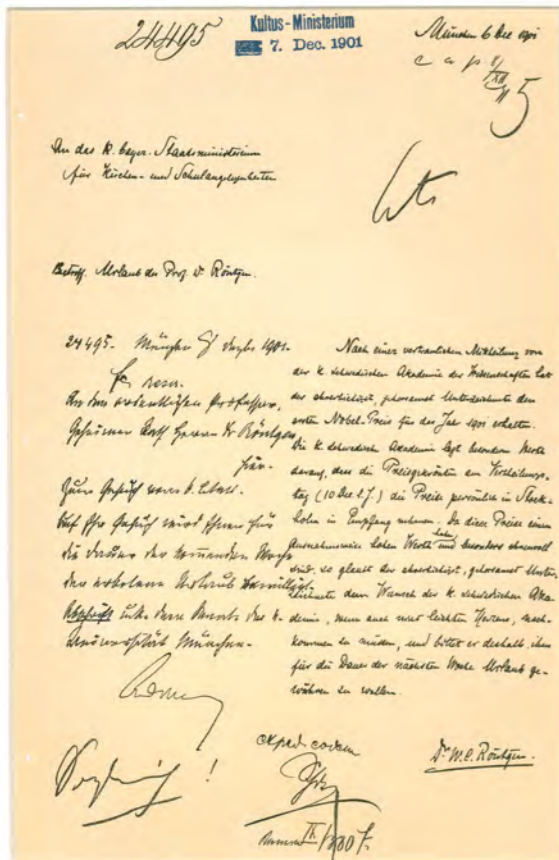 24495
Kultus-Ministerium
7. Dec. 1901
München 6 Dec 1901
An das K. bayer. Staatsministerium
für Kirchen- und Schulangelegenheiten
Betreff. Urlaub des Prof. Dr. Röntgen.
24495. München 1901.
An den ordentlichen Professor,
Geheimen Rath Herrn Dr Röntgen
hier.
Zum Gesuch vom
Auf Ihr Gesuch wird Ihnen für
die Dauer der kommenden Woche
der erbetene Urlaub bewilligt.
Abschrift dem Senate der K.
Universität München.
Nach einer vertraulichen Mittheilung von
der K. schwedischen Akademie der Wissenschaften hat
der ehrerbietigst, gehorsamst Unterzeichnete den
ersten Nobel-Preis für das Jahr 1901 erhalten.
Die K. schwedische Akademie legt besondern Werth
darauf, dass die Preisgekrönten am Vertheilungs-
tag (10 Dec. d. J.) die Preise persönlich in Stock-
holm in Empfang nehmen. Da diese Preise einen
ausnahmsweise hohen Werth haben und besonders ehrenvoll
sind, so glaubt der ehrerbietigst, gehorsamst Unter-
zeichnete dem Wunsch der K. schwedischen Aka-
demie, wenn auch nicht leichten Herzens, nach-
kommen zu müssen, und bittet er deshalb, ihm
für die Dauer der nächsten Woche Urlaub ge-
währen zu wollen.
Dr. W. C. Röntgen.